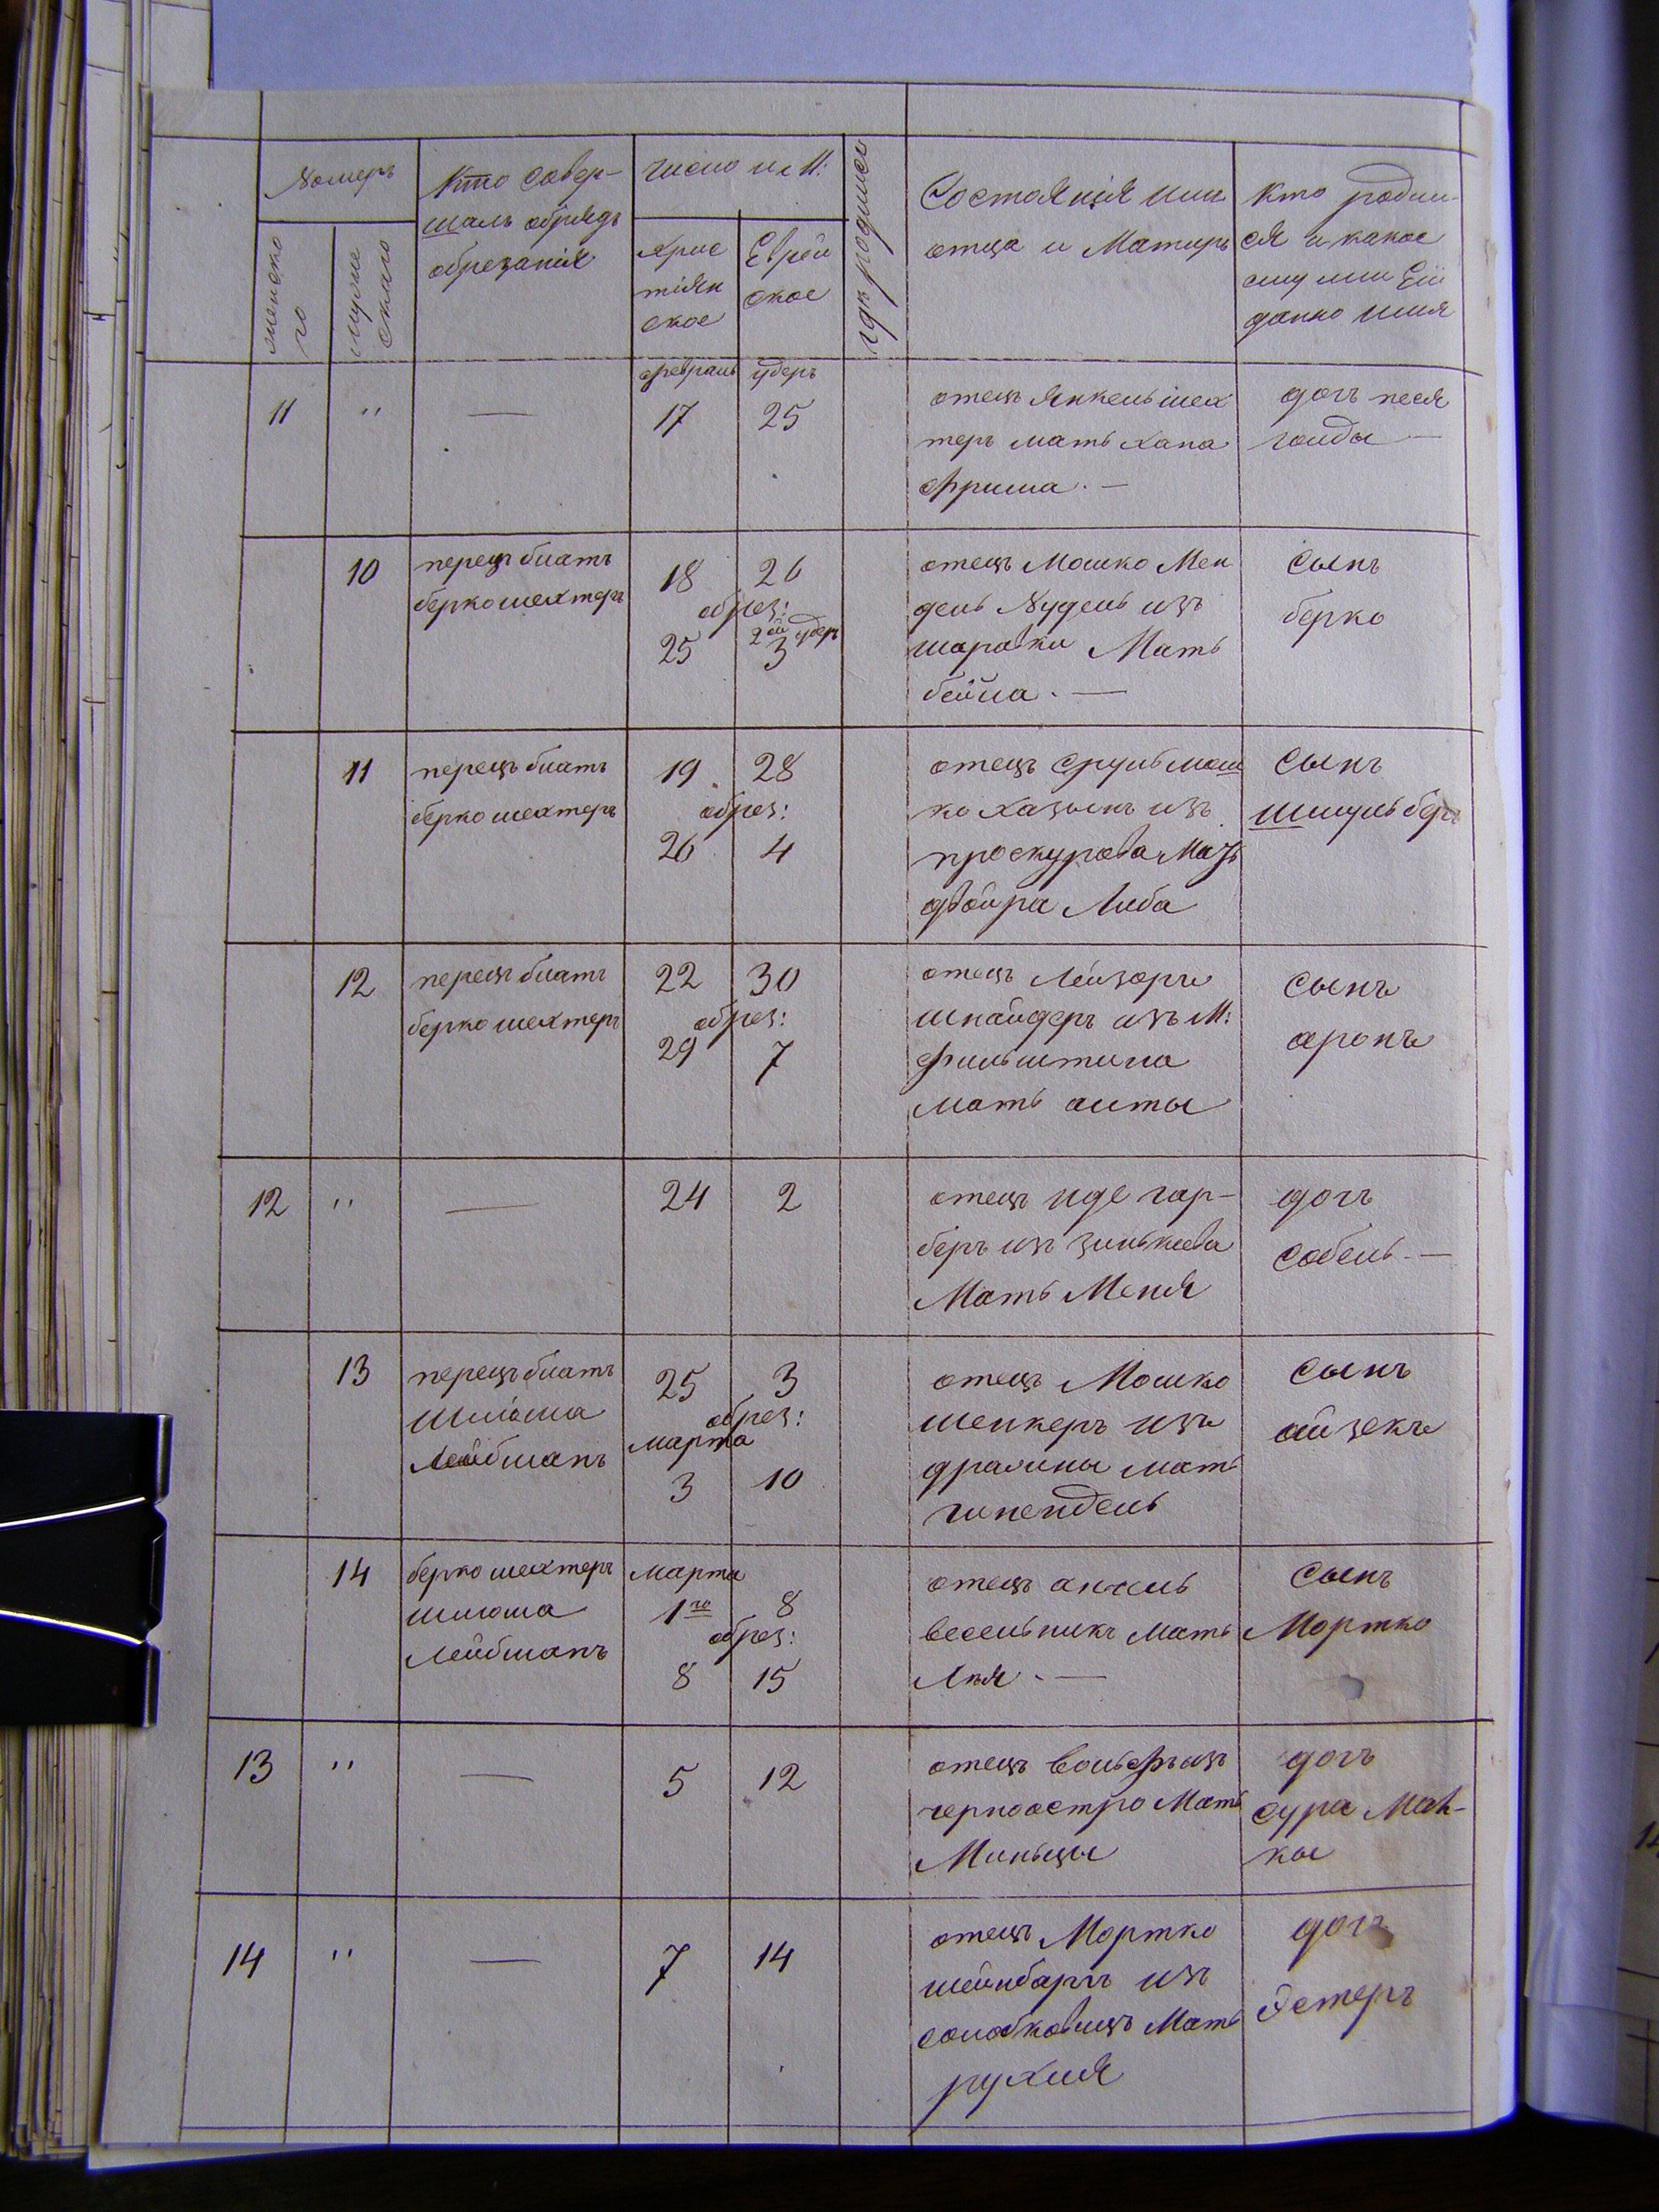 Номеръ
женско
го
мужес
скаго
Кто совер-
шалъ обрядъ
обрезанія
число и М:
Хрис
тіян
ское
Еврей
ское
гдѣ родился
Состоянія имя
отца и Матиръ
кто родил-
ся и какое
ему или Ей
данно имя
февраль
11
"
17
25
отецъ Янкель шех
теръ мать хана
фрима. —
дочъ песя
голды —
10
перецъ блатъ
берко шехтеръ
18
26
обрез:
25
3
отецъ Мошко Мен
дель Нудель изъ
шаравки Мать
бейла. —
сынъ
берко
11
перецъ блатъ
берко шехтеръ
19
28
обрез:
26
4
отецъ сруль мош
ко хазынъ изъ
проскурова Мать
двойра Либа
сынъ
Шмуль бер
12
перецъ блатъ
берко шехтеръ
22
30
обрез:
29
7
отецъ Лейзоръ
шнайдеръ изъ М:
фильштина
мать аиты
сынъ
аронъ
12
"
24
2
отецъ иде гар-
беръ изъ зинькова
Мать Меня
дочъ
собель. —
13
перецъ блатъ
шлйома
Лейбманъ
25
3
обрез:
марта
3
10
отецъ Мошко
шенкеръ изъ
мать
гнендель
сынъ
айзекъ
14
берко шехтеръ
шлиома
Лейбманъ
марта
1го
8
обрез:
8
15
отецъ анчель
весельникъ мать
Лия. —
сынъ
Мортко
13
"
5
12
отецъ вольфъ изъ
черноостро Мать
Миньцы
дочъ
сура Мал-
кы
14
"
7
14
отецъ Мортко
шейнбаргъ изъ
солобковицъ Мать
рухля
дочъ
Эстеръ